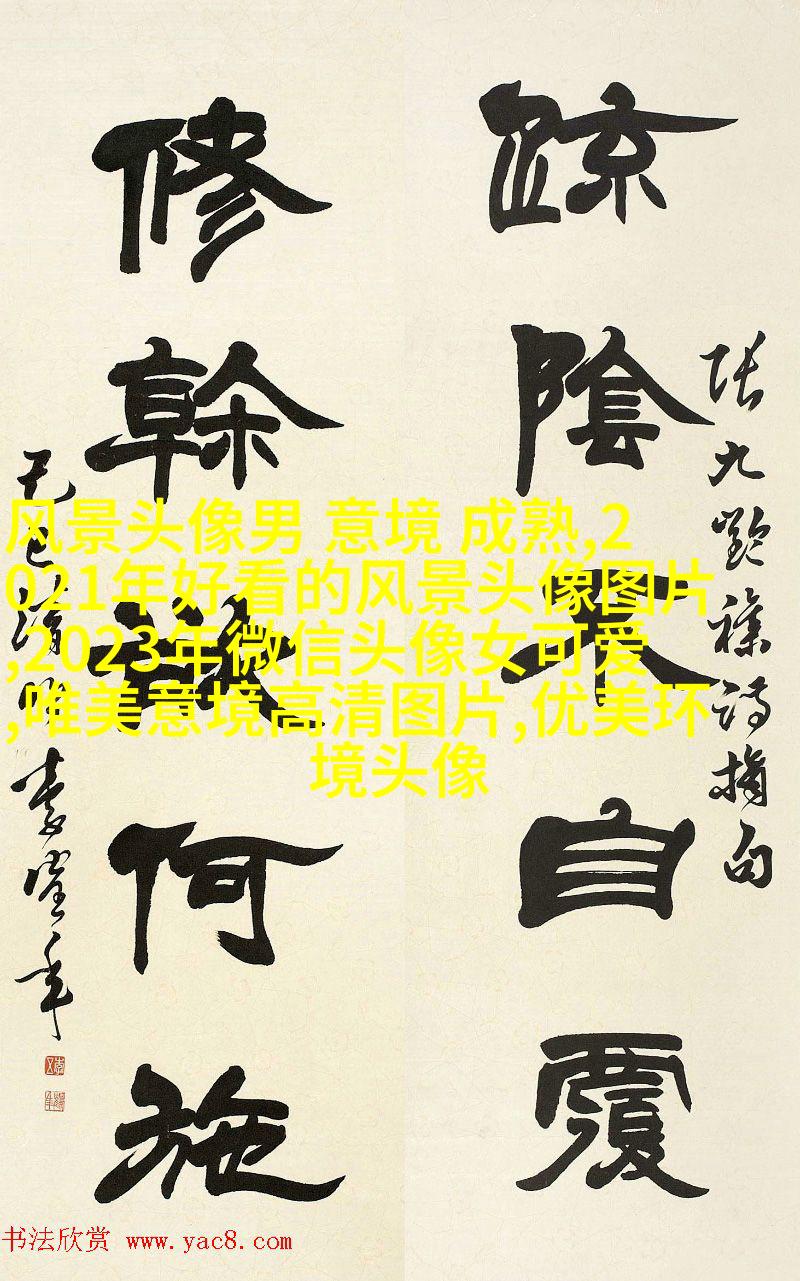 疏陰不自覆
張九齡雜詩摘句
修幹欲何施
己巳
风景头像男 意境 成熟,2
021年好看的风景头像图片
,2023年微信头像女可爱
,唯美意境高清图片,优美环
境头像
书法欣赏 www.yac8.com